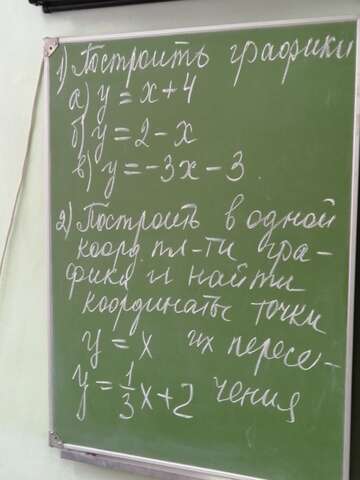 1) Построить графики
а) y = x + 4
б) y = 2 - x
в) y = -3x - 3.
2) Построить в одной
коорд. пл-ти гра-
фика и найти
координаты точки
y = x их пересе-
y = 1/3 x + 2 чения